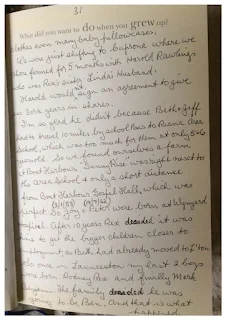 31
What did you want to do when you grew up?
clothes even many baby pillowcases.
We were just shifting to Capstone where we
share farmed for 5 months with Harold Rawlings
who was Rex's sister Linda's Husband.
Harold would sign an agreement to give
us 3 or 4 years in shares.
so glad he didn't because Beth & Jeff
had to travel 10 miles by school bus to Riana Area
School, which was too much for them at only 5 & 6
years old. So we found ourselves a farm
at Boat Harbour "Sunny Rise" was right next to
the Area School & only a short distance
from Boat Harbour Gospel Hall, which was
perfect. So Joy & Peter were born at Wynyard
Hospital. After 10 years Rex decided it was
time to get the bigger children closer to
employment, as Beth had already moved to
one in Launceston my last 2 boys
were born Rodney Rex and finally Mark
The family decided he was
going to be Ben. And that is what
happened.